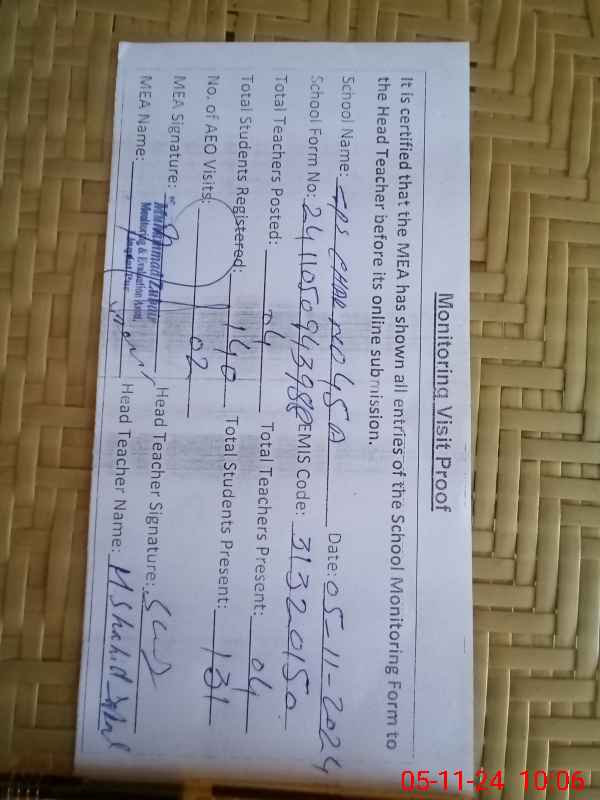 Monitoring Visit Proof
It is certified that the MEA has shown all entries of the School Monitoring Form to
the Head Teacher before its online submission.
School Name: GPS CHAK NO 45 A Date: 05-11-2024
School Form No: EMIS Code: 31320150
Total Teachers Posted: 04 Total Teachers Present: 04
Total Students Registered: 140 Total Students Present: 131
No. of AEO Visits: 02
MEA Signature: Head Teacher Signature:
Muhammad
Monitoring & Evaluation Assist.
MEA Name: Head Teacher Name: M Shahid
05-11-24 10:06